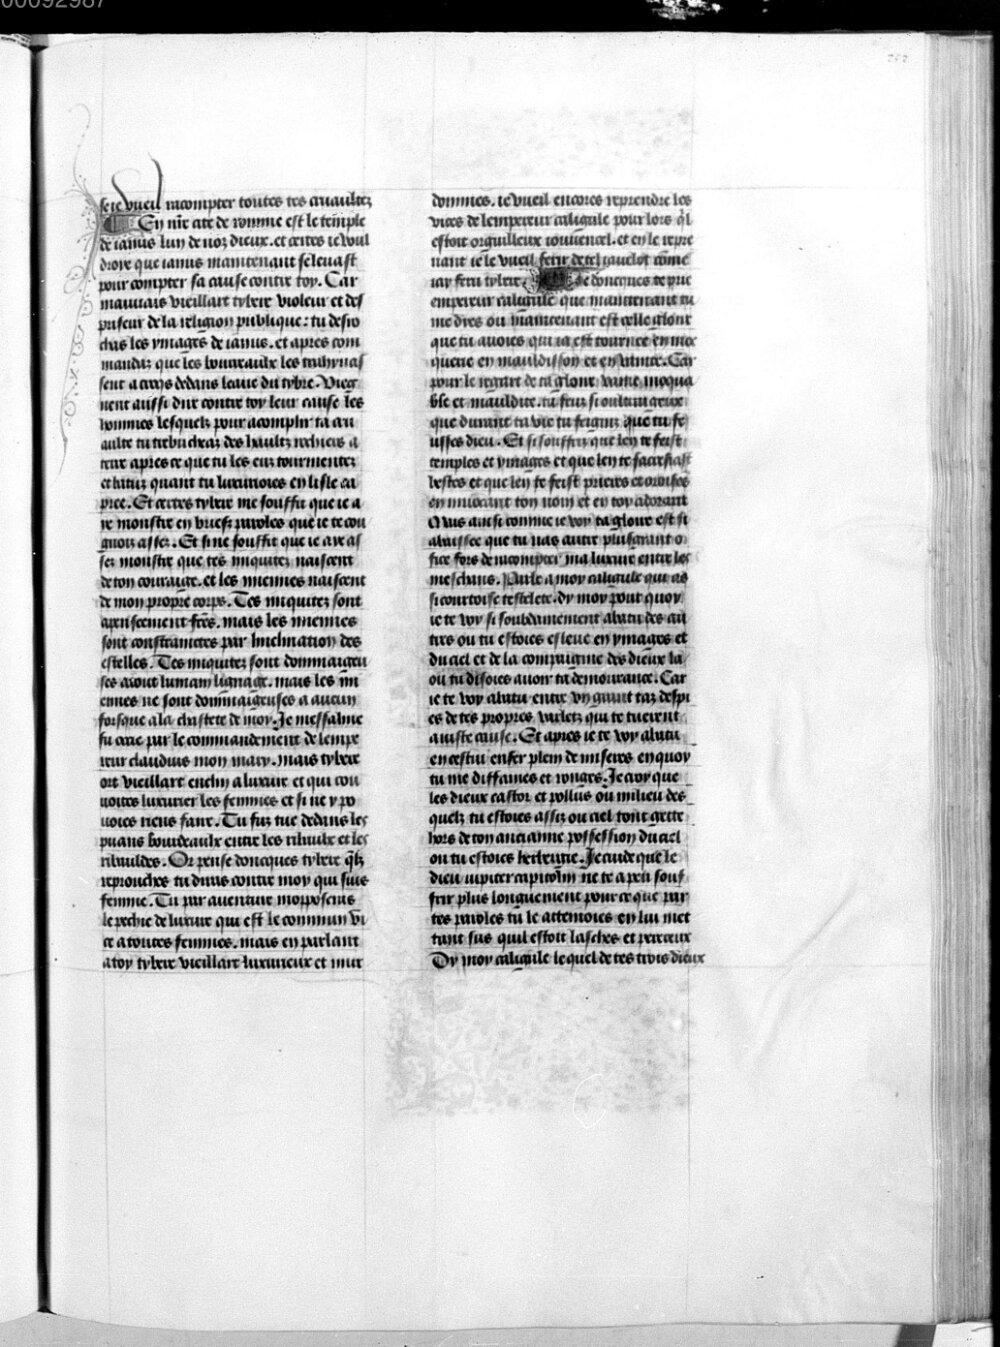 00092987
se ie vueil racompter toutes tes cruaultez
En nr̄e cite de romme est le temple
de ianus lun de noz dieux. et certes ie voul
droye que ianus maintenant se leuast
pour compter sa cause contre toy. Car
mauuais vieillart tybere violeur et des
priseur de la religion publique: tu desro
bas les ymages de ianus. et apres com
mandaz que les bourreaulx les trahynas
sent a crocs dedans leaue du tybre. Vieg
nent aussi dire contre toy leur cause les
hommes lesquelz pour acomplir ta cru
aulte tu trebuchaz des haultz rochiers a
terre apres ce que tu les euz tourmentez
et batuz quant tu luxurioies en lisle ca
pree. Et certes tybere me souffit que ie a
ye monstre en briefz paroles que ie te cou
gnois assez. Et si me souffit que ie aye as
sez monstre que tes iniquitez naiscent
de ton couraige. et les miennes naiscent
de mon propre corps. Tes iniquitez sont
apenseement frēs. mais les miennes
sont constrainctes par linclination des
estelles. Tes iniquitez sont dommaigeu
ses a tout lumain lignage. mais les mi
ennes ne sont dommaigeuses a aucun
forsque a la chastete de moy. Je messaline
fu cree par le commandement de lempe
reur claudius mon mary. mais tybere
ort vieillart enclin a luxure et qui cou
uoites luxurier les femmes et si ne y po
uoies riens faire. Tu fuz tue dedans les
puans bourdeaulx entre les ribaulx et les
ribauldes. Or pense doncques tybere q̄lz
reprouches tu diras contre moy qui suis
femme. Tu par auenture mopposeras
le pechie de luxure qui est le commun vi
ce a toutes femmes. mais en parlant
a toy tybere vieillart luxurieux et mur
dommes. ie vueil encores reprendre les
vices de lempereur caligule pour lors q̄l
estoit orguilleux iouuencel. et en le repre
nant ie le vueil ferir de tel iauelot cōme
iay feru tybere. Je doncques te prie
empereur caligule que maintenant tu
me dies ou maintenant est celle gloire
que tu auoies qui ia est tournee en moc
querie en mauldisson et en vanite. Car
pour le regart de ta gloire vaine mocqua
ble et mauldite. tu feuz si oultraigeux
que durant ta vie tu feigniz que tu fe
usses dieu. Et si souffriz que len te feist
temples et ymages et que len te sacrefiast
bestes et que len te feist prieres et oroisons
en inuocant ton nom et en toy adorant
Mais ainsi comme ie voy ta gloire est si
abaissee que tu nas autre plus grant o
fice fors de racompter ma luxure entre les
meschans. Parle a moy caligule qui as
si courtoise testelete. dy moy pour quoy
ie te voy si soubdainement abatu des au
tres ou tu estoies esleue en ymages et
du ciel et de la compaignie des dieux la
ou tu disoies auoir ta demourance. Car
ie te voy abatu entre vng grant taz despi
es de tes propres varletz qui te tuerent
a iuste cause. Et apres ie te voy abatu
en cestui enfer plein de miseres en quoy
tu me diffames et ronges. Je croy que
les dieux castor et pollus ou milieu des
quelz tu estoies assiz ou ciel tont gette
hors de ton ancianne possession du ciel
ou tu estoies herbergie. Je cuide que le
dieu iupiter capitolin ne te a peu souf
frir plus longuement pour ce que par
tes paroles tu le attemoies en lui met
tant sus quil estoit lasches et pereceux
Dy moy caligule lequel de tes trois dieux